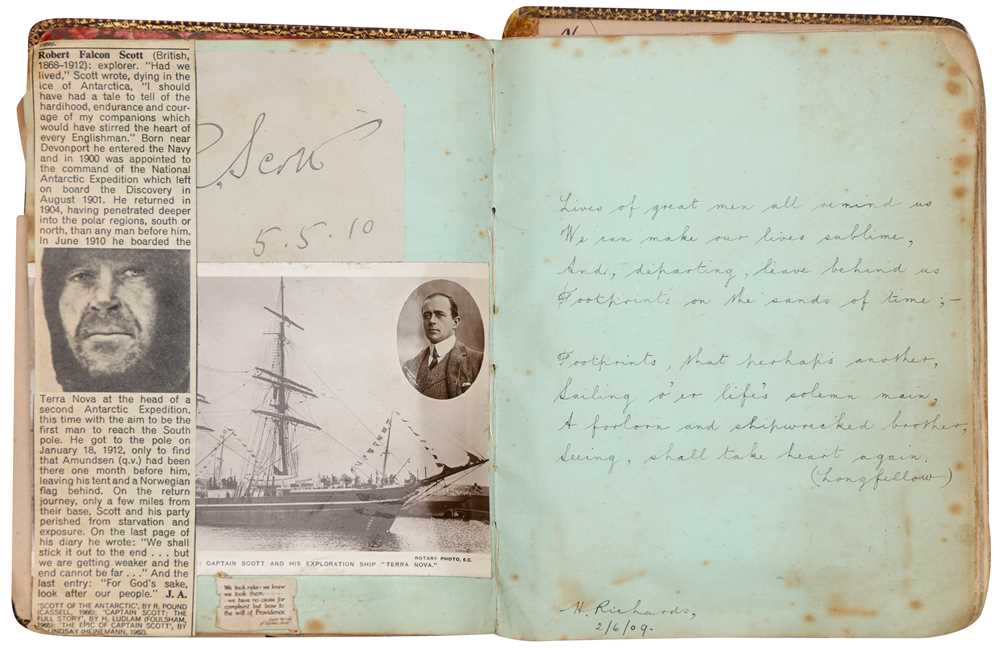 Robert Falcon Scott (British,
1868–1912): explorer. "Had we
lived," Scott wrote, dying in the
ice of Antarctica, "I should
have had a tale to tell of the
hardihood, endurance and cour-
age of my companions which
would have stirred the heart of
every Englishman." Born near
Devonport he entered the Navy
and in 1900 was appointed to
the command of the National
Antarctic Expedition which left
on board the Discovery in
August 1901. He returned in
1904, having penetrated deeper
into the polar regions, south or
north, than any man before him.
In June 1910 he boarded the
Terra Nova at the head of a
second Antarctic Expedition,
this time with the aim to be the
first man to reach the South
pole. He got to the pole on
January 18, 1912, only to find
that Amundsen (q.v.) had been
there one month before him,
leaving his tent and a Norwegian
flag behind. On the return
journey, only a few miles from
their base, Scott and his party
perished from starvation and
exposure. On the last page of
his diary he wrote: "We shall
stick it out to the end . . . but
we are getting weaker and the
end cannot be far . . ." And the
last entry: "For God's sake,
look after our people." J. A.
'SCOTT OF THE ANTARCTIC', BY R. POUND
(CASSELL, 1966); 'CAPTAIN SCOTT: THE
FULL STORY', BY H. LUDLAM (FOULSHAM,
1965); 'THE EPIC OF CAPTAIN SCOTT', BY
LINDSAY (HEINEMANN, 1962).
R. Scott
5.5.10
ROTARY PHOTO, E.C.
CAPTAIN SCOTT AND HIS EXPLORATION SHIP "TERRA NOVA."
We took risks - we knew
we took them . . . .
we have no cause for
complaint but bow to
the will of Providence.
Lives of great men all remind us
We can make our lives sublime,
And, departing, leave behind us
Footprints on the sands of time;-
Footprints, that perhaps another,
Sailing o'er life's solemn main,
A forlorn and shipwrecked brother,
Seeing, shall take heart again.
(Longfellow)
H. Richards,
2/6/09.